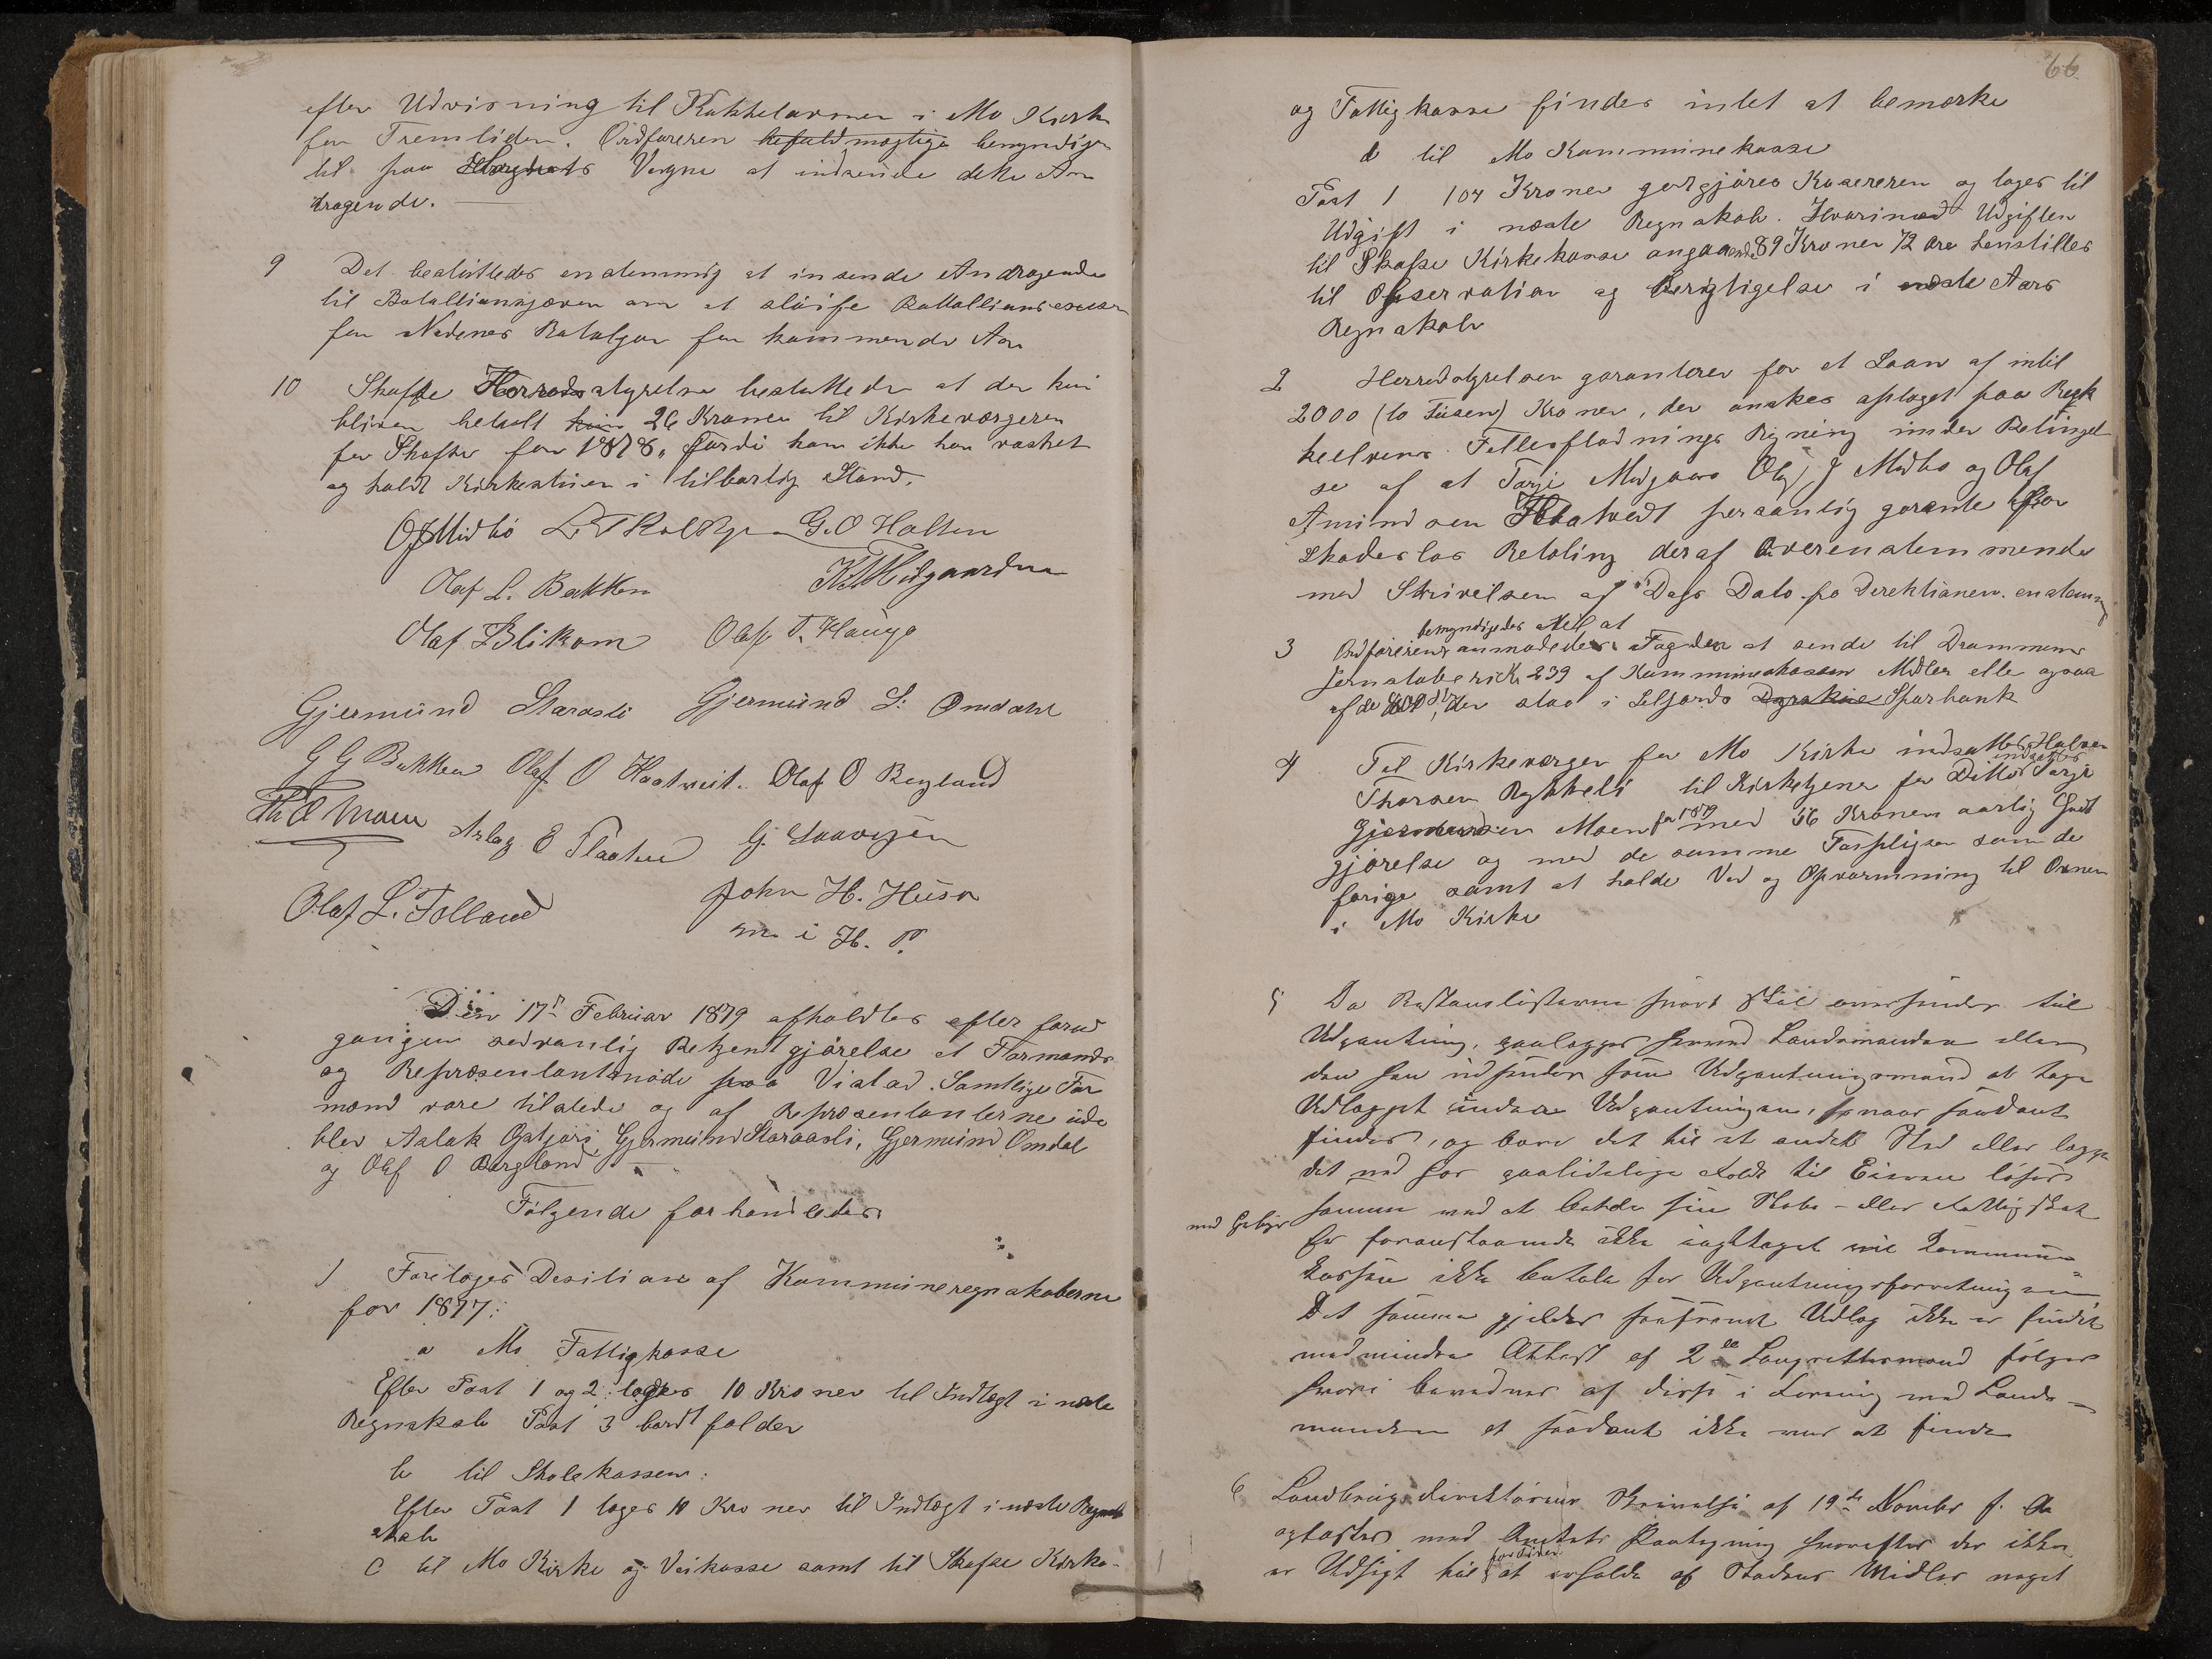 efter Udvisning til Kakkelovnen i Mo Kirke
for Fremtiden. Ordføreren befuldmægtiga bemyndiges
til paa Vegne at indsende dette An
dragende.
9 Det besluttedes enstemmig at insende Andragende
til Batallionsjæven om at sløife
for Nedenes Bataljon for kommende Aar
10 Skafse Herredsstyrelse besluttede at der kun
bliver betalt kun 26 Kroner til Kirkeværgeren
for Skafse for 1878, fordi han ikke har vasket
og holdt Kirkestuen i tilbørlig Stand.
O J Midbö G. O Holten
Olaf L. Bakken K. T. Midgaarden
Olaf Blikom Olaf T. Haugo
Gjermund Starasli Gjermund S: Omdahl
G G Bakken Olaf O Haatveit. Olaf O Bergland
Th O Moen Aslag E Flaaten G.
Olaf L. Folland John H. Huso
m. i H. P.
Den 17de Februar 1879 afholdtes efter forud
gangen sedvanlig Bekjendtgjørelse et Formands
og Repræsentantmøde paa Vistad. Samtlige For
mænd vare tilstede og af Repræsentanterne ude
blev Aslak Gjermund Staraasli, Gjermund Omdal
og Olaf O Bergland
Følgende forhandledes
1 Foretoges Desision af Kommuneregnskaberne
for 1877:
a Mo Fattigkasse
Efter Post 1 og 2: tages 10 Kroner til Indtægt i næste
Regnskab Post 3 bortfalder
b til Skolekassen:
Efter Post 1 tages 10 Kroner til Indtægt i næste Regn
skab
c til Mo Kirke og Veikasse samt til Skafse Kirke-
66
og Fattigkasse findes intet at bemærke
d til Mo Kommunekasse
Post 1 104 Kroner godtgjøres Kasereren og tages til
Udgift i næste Regnskab. Udgiften
til Skafse Kirkekasse angaaende 89 Kroner 72 Øre henstilles
til Observation og Berigtigelse i næste Aars
Regnskab
2 Herredstyrelsen garanterer for et Laan af intil
2000 (to Tusen) Kroner, der ønskes optaget paa
Fellesflødnings Regning under Betingel
se af at Tarje Midgaars Olaf J Midbø og Olaf
Amundsen Haatvedt personlig garante for
skadesløs Betaling deraf Overenstemmende
med Skrivelsen af Dags Dato fra Direktionen. enstemmig
3 Ordføreren bemyndiges til at anmodedes Fogden at sende til Drammens
Jernstøberi Kr 239 af Kommunekassens Midler elle ogsaa
af de der staa i Seljords Dyrskue Sparbank
4 Til Kirkeværger for Mo Kirke indsattes Halvor
Thorsen Rykkeli til Kirketjener for Ditto indsattes Tarje
Gjermundsen Moen for 1879 med 56 Kroner aarlig Godt
gjørelse og med de samme Forpligter som de
forige samt at holde Ved og Opvarmning til Ovnen
i Mo Kirke
5 Da Restancelisterne snart skal oversendes til
Udpantning, paalægges herved Lensmanden eller
den han udsender som Udpantningsmand at tage
Udlægget under Udpantningen, naar saadant
findes, og bære det til et andet Sted eller lægge
det ned hos paalidelige Folk til Eieren løser
samme ved at betale sin Skole- eller Fattigskat
med Gebyr
Er foranstaaende ikke iagttaget vil Kommune
kassen ikke betale for Udpantningsforretningen
Det samme gjælder saafremt Udlæg ikke er fundet
medmindre Attest af 2de Laugrettesmænd følger
hvori bevidnes af disse i Forening med Lends-
manden at saadant ikke var at finde
6 Landbrugsdirektørens Skrivelse af 19de Novembr f. A
oplæstes med Amtets Paategning hvorefter der ikke
er Udsigt til for Tiden at erholde af Statens Midler noget